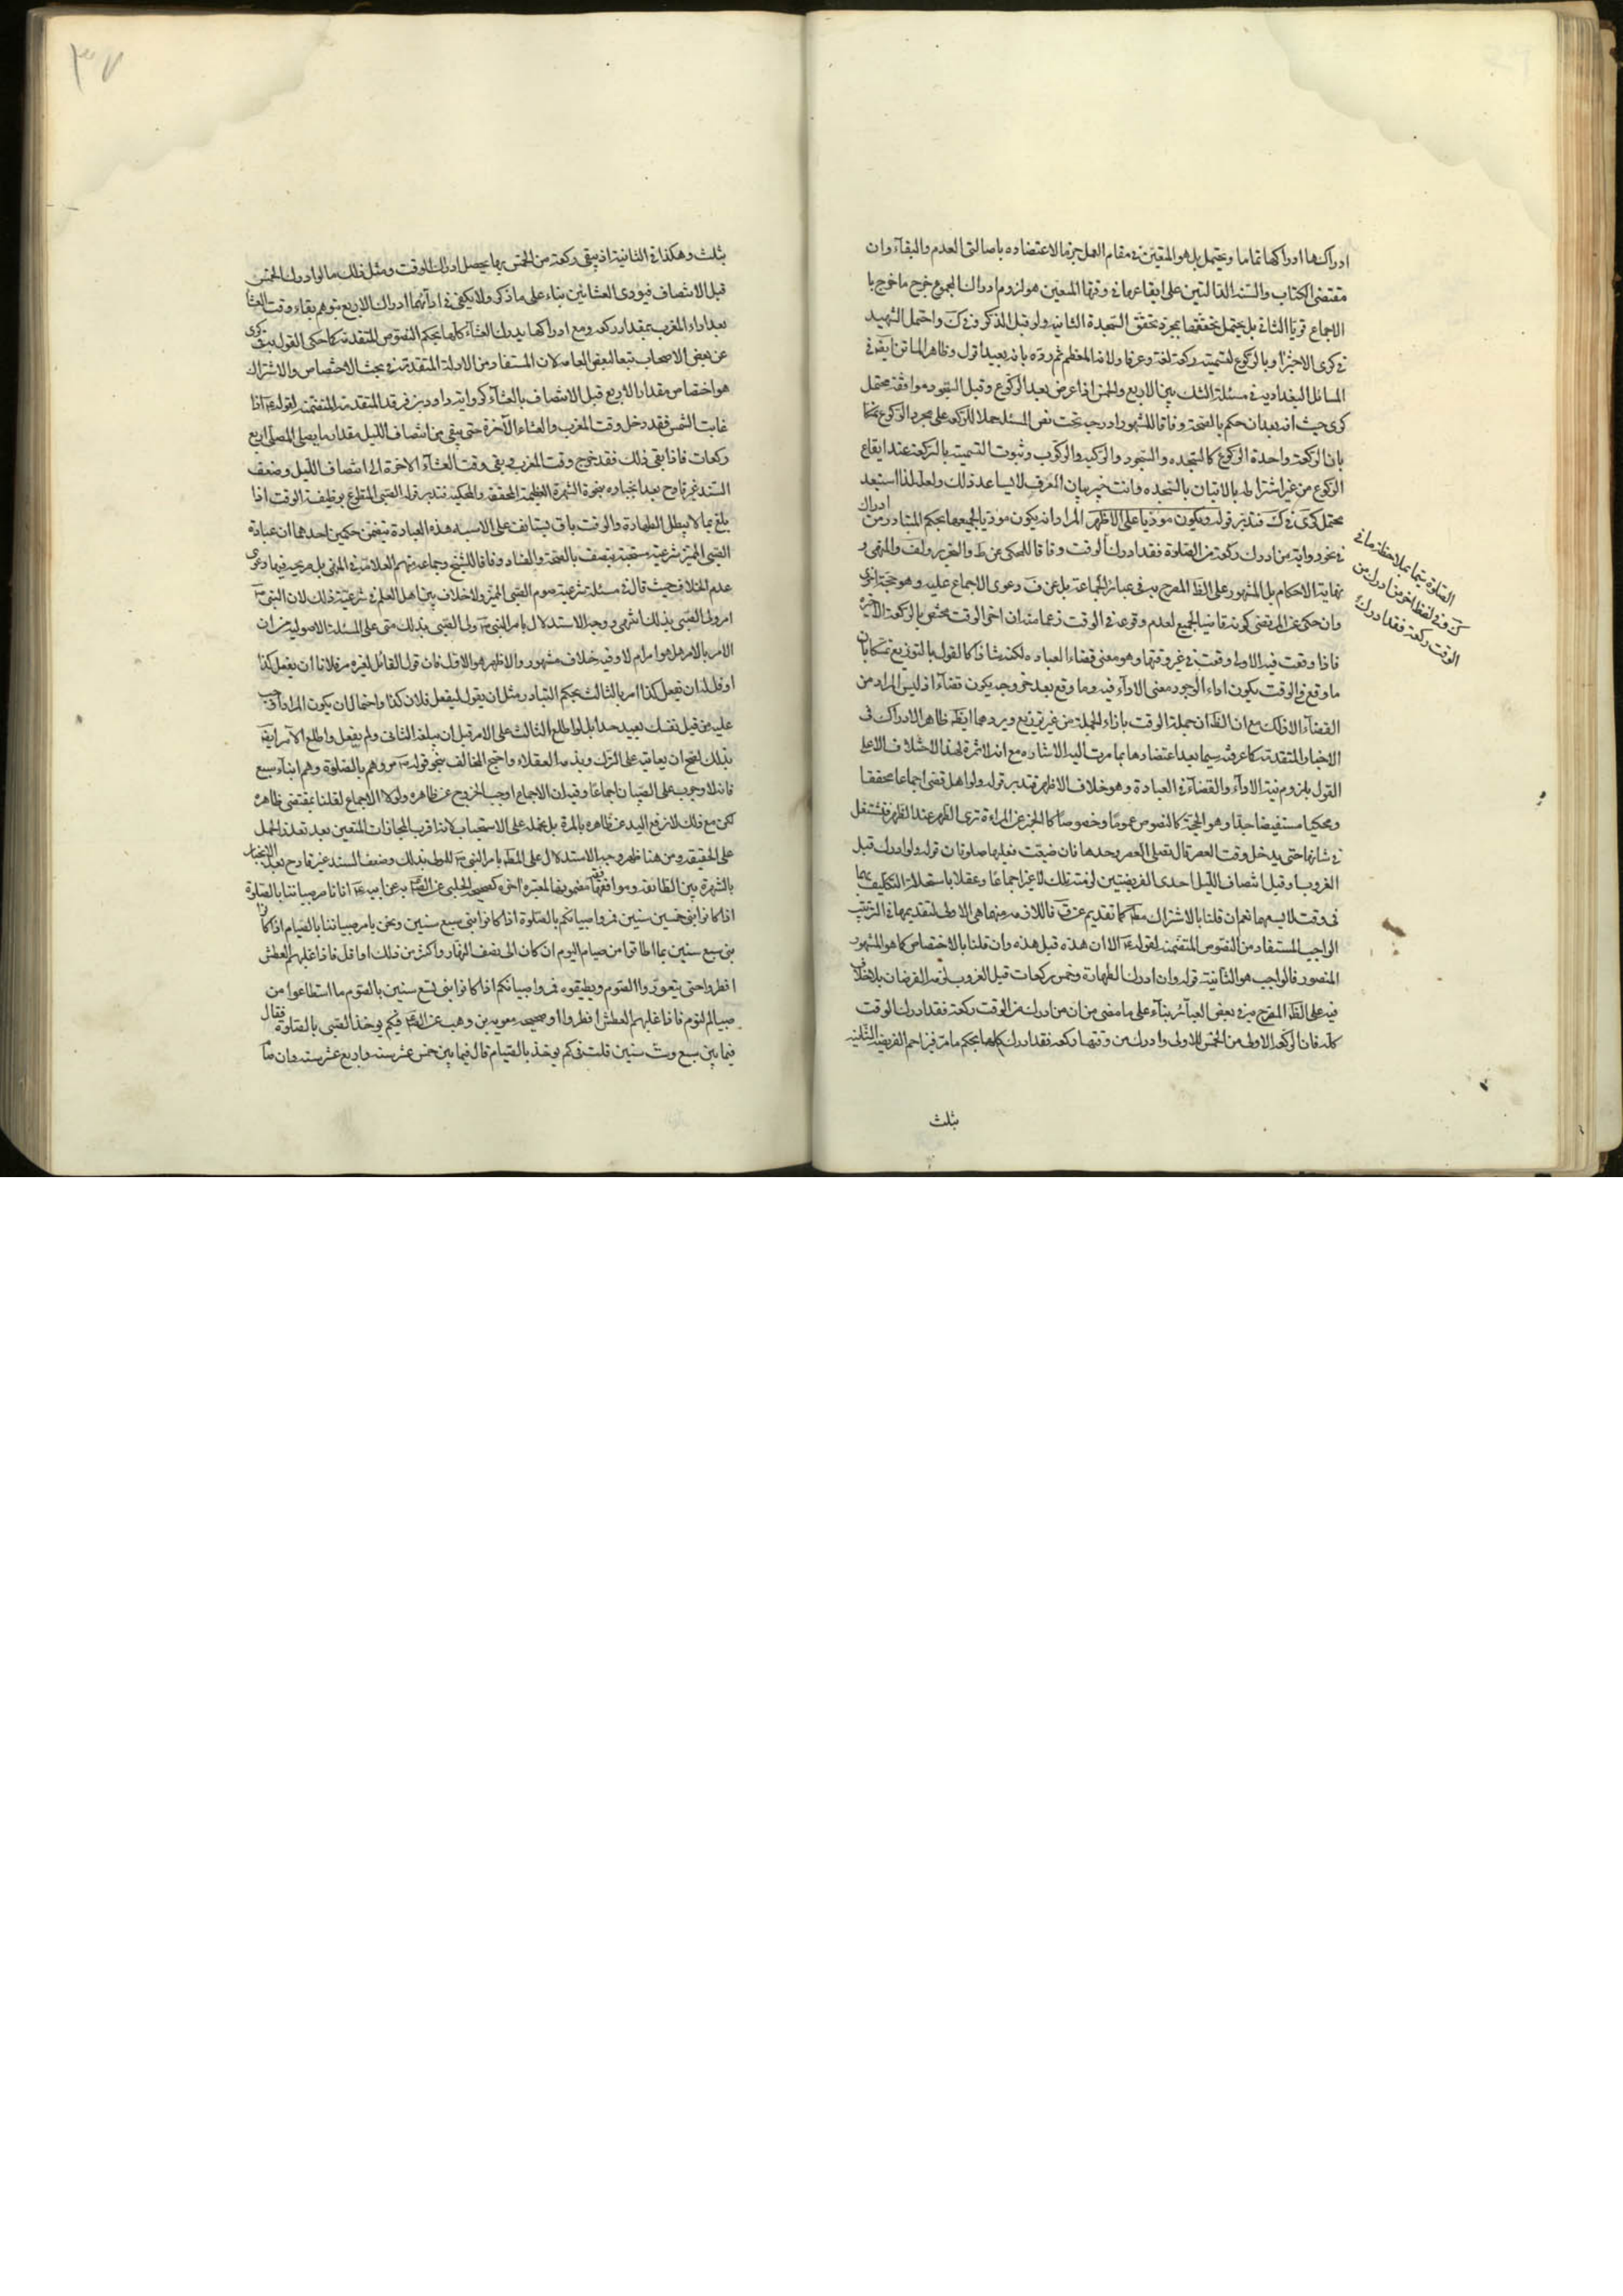 ادراكها ادراكها تماما ويحتمل بل هو المتعين في مقام العمل جزما لاعتضاده باصالتي العدم والبقاء وان
مقتضى الكتاب والسنة الدالتين على ايقاعها في وقتها المعين هو لزوم ادراك المجموع خرج ما خرج با
الاجماع قويا الثاني بل يحتمل تحققها بمجرد تحقق السجدة الثانية ولو قبل الذكر وفي ك واحتمل الشهيد
في كرى الاجتزاء بالركوع لتسميته ركعة لغة وعرفا ولانه المعظم ثم رده بانه بعيد اقول وظاهر الماتن ايضه في
المسائل البغدادية في مسئلة الشك بين الاربع والخمس اذا عرض بعد الركوع وقبل السجود موافقة محتمل
كرى حيث انه بعد ان حكم بالصحة وفاقا للشهور ادرجه تحت نص المسئلة حملا للركعة على مجرد الركوع
بان الركعة واحدة الركوع كالسجدة والسجود والركبة والركوب وثبوت التسمية بالركعة عند ايقاع
الركوع من غير اشتراطه بالاتيان بالسجدة وانت خبير بان العرف لا يساعد ذلك ولعله لذا استبعد
محتمل كرى في ك فتدبر قوله ويكون مؤديا على الاظهر المراد انه يكون مؤديا لجميعها بحكم المتبادر من ادراك
في نحو رواية من ادرك ركعة من الصلوة فقد ادرك الوقت وفاقا للمحكي عن ط والتحرير ولف والمنتهى و
نهاية الاحكام بل المشهور على الظ المصرح به في عبائر الجماعة بل عن ف دعوى الاجماع عليه وهو حجة اخرى
وان حكى عن المرتضى كونه قاضيا لجميع لعدم وقوعه في الوقت زعما منه ان اخر الوقت مختص بالركعة الاخيرة
فاذا وقعت فيه الاولى وقعت في غير وقتها وهو معنى قضاء العبادة لكنه شاذ كالقول بالتوزيع تمسكا بان
ما وقع في الوقت يكون اداء لوجود معنى الاداء فيه وما وقع بعد خروجه يكون قضاء اذ ليس المراد من
القضاء الا ذلك مع ان الظ ان جملة الوقت بازاء الجملة من غير توزيع ويردهما ايضه ظاهر الادراك في
الاخبار المتقدمة كما عرفته سيما بعد اعتضادها بما مرت اليه الاشارة مع انه لا ثمرة لهذا الاختلاف الا على
القول بلزوم نية الاداء والقضاء في العبادة وهو خلاف الاظهر فتدبر قوله ولو اهل قضى اجماعا محققا
ومحكيا مستفيضا جدا وهو الحجة كالنصوص عموما وخصوصا كالخبر عن المراة ترى الطهر عند الظهر فتشتغل
في شانها حتى يدخل وقت العصر قال تصلى العصر وحدها فان ضيعت فعليها صلوتان قوله ولو ادرك قبل
الغروب او قبل انتصاف الليل احدى الفريضتين لزمته تلك لا غير اجماعا وعقلا باستحالة التكليف بهما
في وقت لا يسعهما نعم ان قلنا بالاشتراك مط كما تقديم عن ق فاللازمه منهما هي الاولى لتقديمها في الترتيب
الواجب المستفاد من النصوص المتضمنة لقوله ع الا ان هذه قبل هذه وان قلنا بالاختصاص كما هو المشهور
المنصور فالواجب هو الثانية قوله وان ادرك الطهارة وخمس ركعات قبل الغروب لزمه الفرضان بلا خلاف
فيه على الظ المصرح به في بعض العبائر بناء على ما مضى من ان من ادرك من الوقت ركعة فقد ادرك الوقت
كله فان الركعة الاولى من الخمس للاولى وادرك من وقتها ركعة فقد ادرك كلها بحكم ما مر فيزاحم الفريضة الثانية
الصلوة سيما بملاحظة ما في
ك وفي لفظ اخر من ادرك من
الوقت ركعة فقد ادرك
بثلث
٣٧
بثلث وهكذا في الثانية اذ يبقى ركعة من الخمس بها يحصل ادراك الوقت ومثل ذلك ما لو ادرك الخمس
قبل الانتصاف فيؤدي العشائين بناء على ما ذكر ولا يكفي في ادائهما ادراك الاربع بتوهم بقاء وقت العشا
بعد اداء المغرب بمقدار ركعة ومع ادراكها يدرك العشاء كلها بحكم النصوص المتقدمة كما حكى القول به في كرى
عن بعض الاصحاب تبعا لبعض العامة لان المستفاد من الادلة المتقدمة في بحث الاختصاص والاشتراك
هو اختصاص مقدار الاربع قبل الانتصاف بالعشاء كرواية داود بن فرقد المتقدمة المتضمنة لقوله ع اذا
غابت الشمس فقد دخل وقت المغرب والعشاء الآخرة حتى يبقى من انتصاف الليل مقدار ما يصلى المصلي اربع
ركعات فاذا بقى ذلك فقد خرج وقت المغرب وبقى وقت العشاء الاخرة الى انتصاف الليل وضعف
السند غير قادح بعد انجباره بنحو الشهرة العظيمة المحققة والمحكية فتدبر قوله الصبي المتطوع بوظيفة الوقت اذا
بلغ بما لا يبطل الطهارة والوقت باق يستانف على الاشبه هذه العبادة يتضمن حكمين احدهما ان عبادة
الصبي المميز شرعية مستحبة يتصف بالصحة والفساد وفاقا للشيخ وجماعة ومنهم العلامة في المنتهى بل صريحه فيها دعوى
عدم الخلاف حيث قال في مسئلة شرعية صوم الصبي المميز ولا خلاف بين اهل العلم في شرعية ذلك لان النبي ص
امر ولي الصبي بذلك انتهى ووجه الاستدلال بامر النبي ص ولي الصبي بذلك مبنى على المسئلة الاصولية من ان
الامر بالامر هل هو امر ام لا وفيه خلاف مشهور والاظهر هو الاول فان قول القائل لغيره مر فلانا ان يفعل كذا
او قل له ان تفعل كذا امر بالثالث بحكم التبادر مثل ان يقول ليفعل فلان كذا واحتمال ان يكون المراد اوجب
عليه من قبل نفسك بعيد جدا بل لو اطلع الثالث على الامر قبل ان يبلغه الثاني ولم يفعل واطلع الآمر ايضه
بذلك لصح ان يعاقبه على الترك ويذمه العقلاء واحتج المخالف بنحو قوله ص مروهم بالصلوة وهم ابناء سبع
فانه لا وجوب على الصبيان اجماعا وفيه ان الاجماع اوجب الخروج عن ظاهره ولولا الاجماع لقلنا بمقتضى ظاهره
لكن مع ذلك لا نرفع اليد عن ظاهره بالمرة بل نحمله على الاستحباب لانه اقرب المجازات المتعين بعد تعذر الحمل
على الحقيقة ومن هنا ظهر وجه الاستدلال على المط بامر النبي ص للولي بذلك وضعف السند غير قادح بعد الانجبار
بالشهرة بين الطائفة وموافقتها مضمونها المعتبرة اخرى كصحيحة الحلبي عن الص ع عن ابيه ع انا نامر صبياننا بالصلوة
اذا كانوا بنى خمسين سنين فمروا صبيانكم بالصلوة اذا كانوا بنى سبع سنين ونحن نامر صبياننا بالصيام اذا كانوا
بنى سبع سنين بما اطاقوا من صيام اليوم ان كان الى نصف النهار واكثر من ذلك او اقل فاذا غلبهم العطش
افطروا حتى يتعودوا الصوم ويطيقوه فمروا صبيانكم اذا كانوا بنى تسع سنين بالصوم ما استطاعوا من
صيام اليوم فاذا غلبهم العطش افطروا وصحيحة معوية بن وهب عن الص ع في كم يؤخذ الصبي بالصلوة فقال
فيما بين سبع وست سنين قلت في كم يؤخذ بالصيام قال فيما بين خمس عشر سنه واربع عشر سنه وان صا